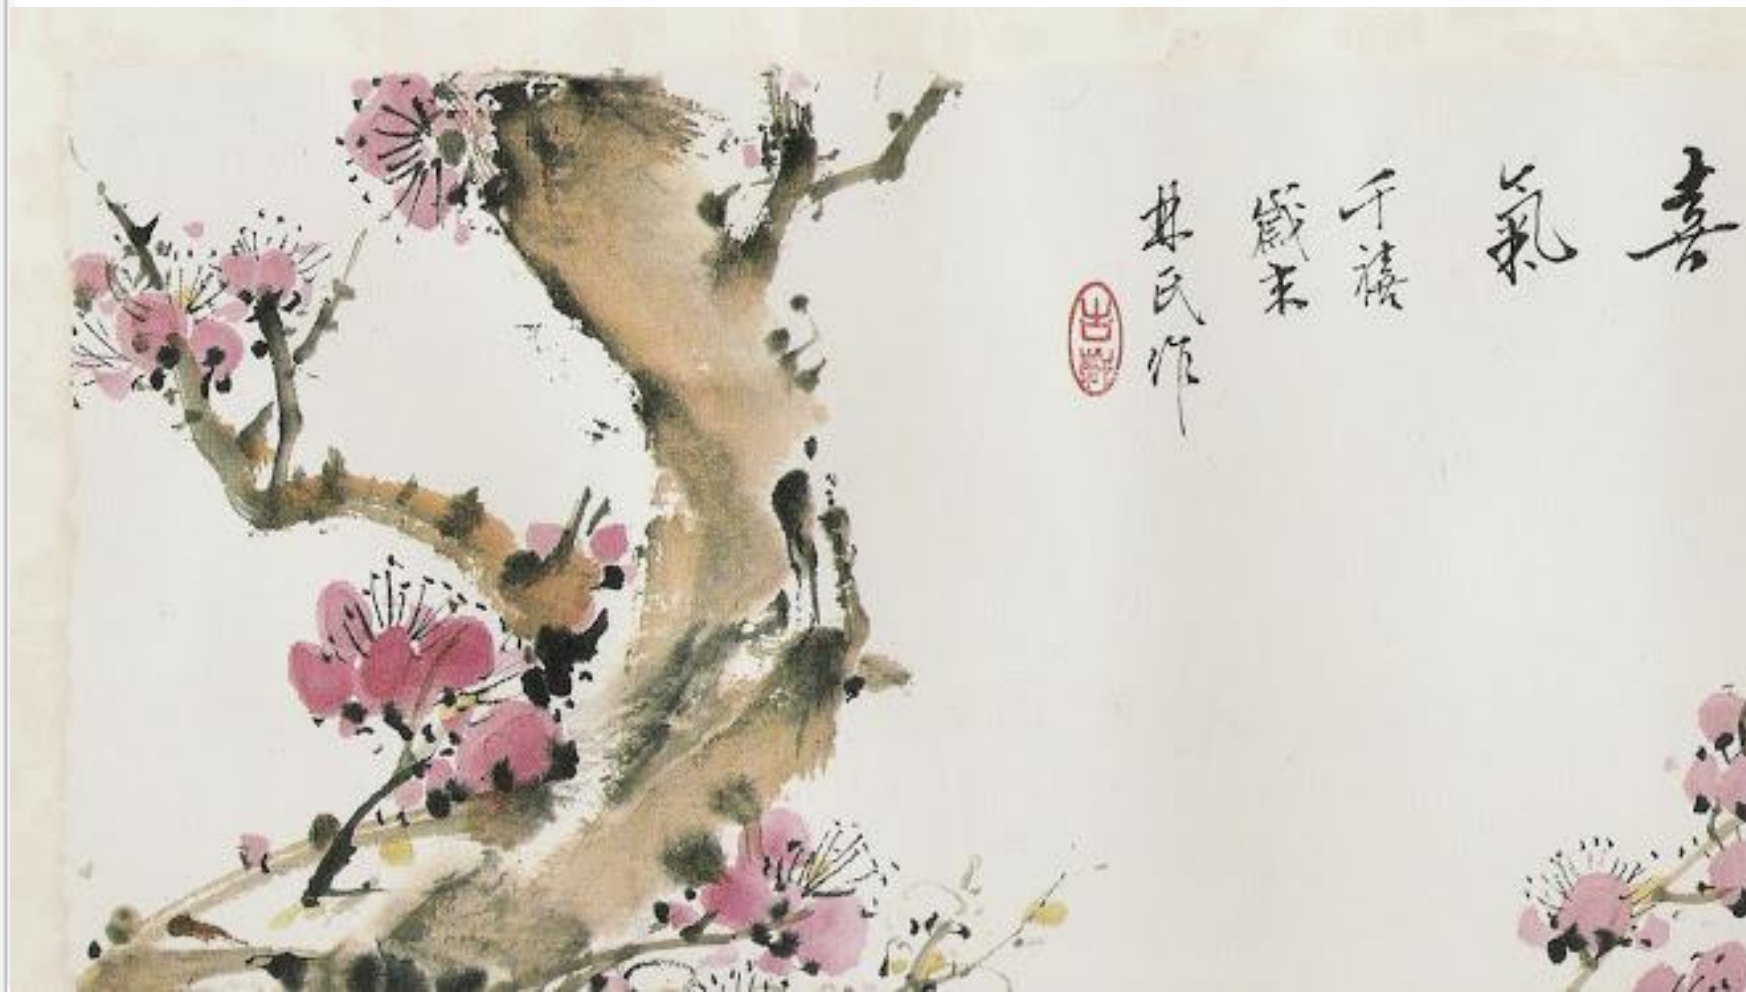 喜氣
千禧
歲末
林氏作
古